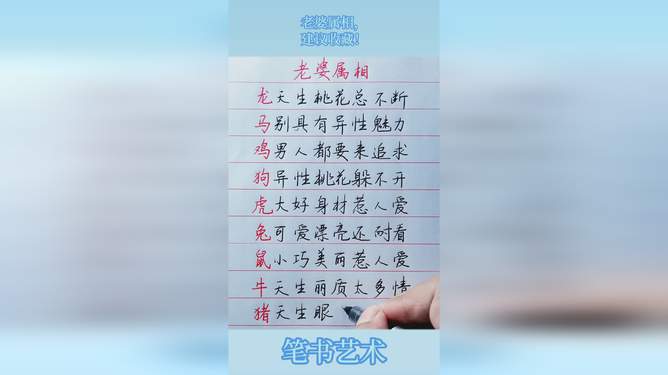 老婆属相,
建议收藏!
老婆属相
龙天生桃花总不断
马别具有异性魅力
鸡男人都要来追求
狗异性桃花躲不开
虎大好身材惹人爱
兔可爱漂亮还耐看
鼠小巧美丽惹人爱
牛天生丽质太多情
猪天生眼
笔书艺术